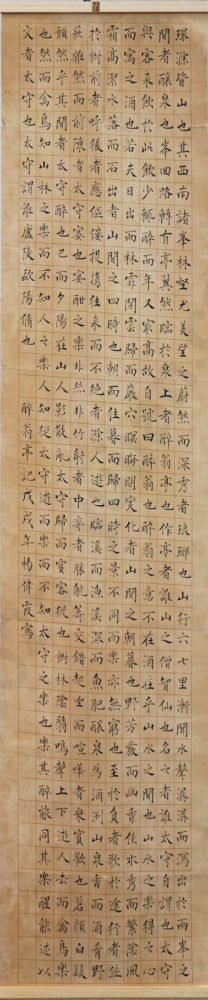 環滁皆山也其西南諸峯林壑尤美望之蔚然而深秀者琅琊也山行六七里漸聞水聲潺潺而瀉出於兩峯之
間者釀泉也峯回路轉有亭翼然臨於泉上者醉翁亭也作亭者誰山之僧智仙也名之者誰太守自謂也太守
與客來飲於此飲少輒醉而年又最高故自號曰醉翁也醉翁之意不在酒在乎山水之間也山水之樂得之心
而寓之酒也若夫日出而林霏開雲歸而巖穴暝晦明變化者山間之朝暮也野芳發而幽香佳木秀而繁陰風
霜高潔水落而石出者山間之四時也朝而往暮而歸四時之景不同而樂亦無窮也至於負者歌於途行者
於樹前者呼後者應傴僂提攜往來而不絕者滁人遊也臨溪而漁溪深而魚肥釀泉為酒泉香而酒洌山肴野
蔌雜然而前陳者太守宴也宴酣之樂非絲非竹射者中奕者勝觥籌交錯起坐而喧嘩者衆賓歡也蒼顏白髮
頹然乎其間者太守醉也已而夕陽在山人影散亂太守歸而賓客從也樹林陰翳鳴聲上下遊人去而禽鳥樂
也然而禽鳥知山林之樂而不知人之樂人知從太守遊而樂而不知太守之樂其樂也醉能同其樂醒能述以
文者太守也太守謂誰廬陵歐陽脩也 醉翁亭記戊戌年楊偉霞寫